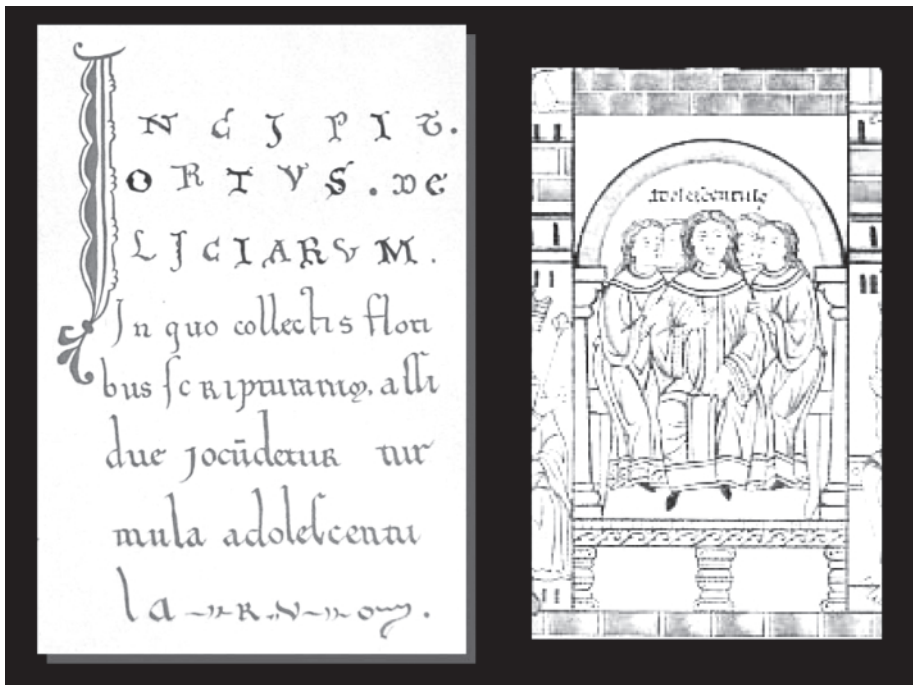 INCIPIT.
ORTVS. DE
LICIARVM.
In quo collectis flori
bus scripturarum, assi
due jocūdetur tur
mula adolescentu
larum.
adolescentule